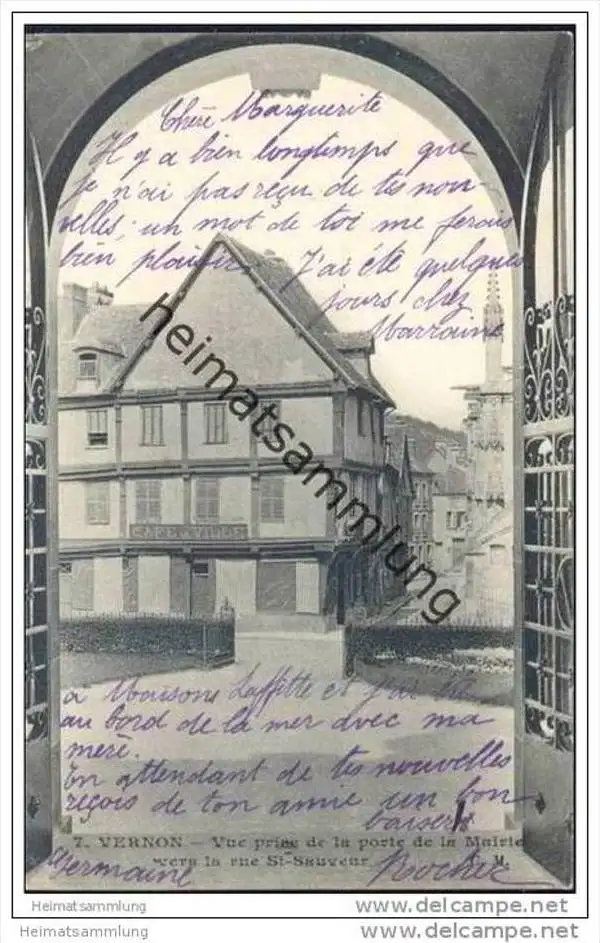 Chère Marguerite
Il y a bien longtemps que
je n'ai pas reçu de tes nou-
velles; un mot de toi me ferais
bien plaisir. J'ai été quelques
jours chez
Marraine
heimatsammlung.de
CAFE DE VILLE
à Maisons Laffitte et j'ai été
au bord de la mer avec ma
mère.
En attendant de tes nouvelles
reçois de ton amie un bon
baiser
7. VERNON — Vue prise de la porte de la Mairie
vers la rue St-Sauveur
Germaine Rocher
Heimatsammlung
Heimatsammlung
www.ak-ansichtskarten.de
www.ak-ansichtskarten.de